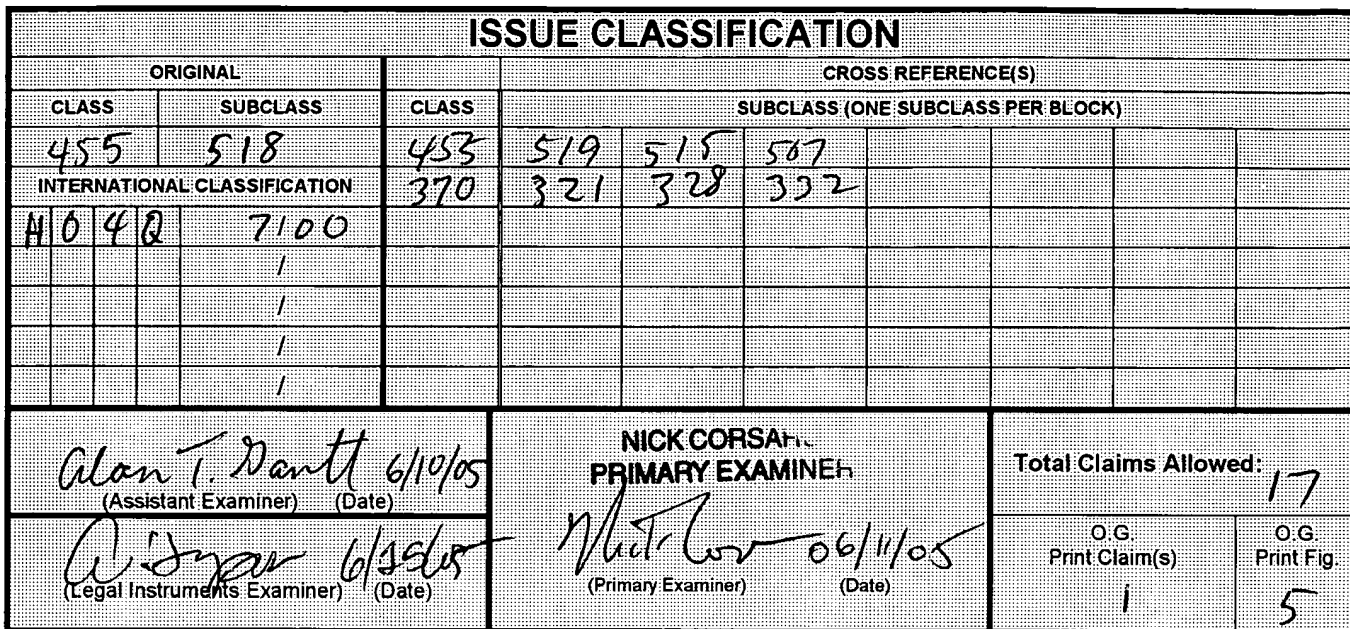 ISSUE CLASSIFICATION
ORIGINAL CROSS REFERENCE(S)
CLASS SUBCLASS CLASS SUBCLASS (ONE SUBCLASS PER BLOCK)
455 518 455 519 515 507
INTERNATIONAL CLASSIFICATION 370 321 328 332
H 0 4 Q 7/00
/
/
/
/
Alan T. Gantt 6/10/05
(Assistant Examiner) (Date)
6/25/05
(Legal Instruments Examiner) (Date)
NICK CORSA
PRIMARY EXAMINER
06/11/05
(Primary Examiner) (Date)
Total Claims Allowed: 17
O.G. Print Claim(s)
1
O.G. Print Fig.
5